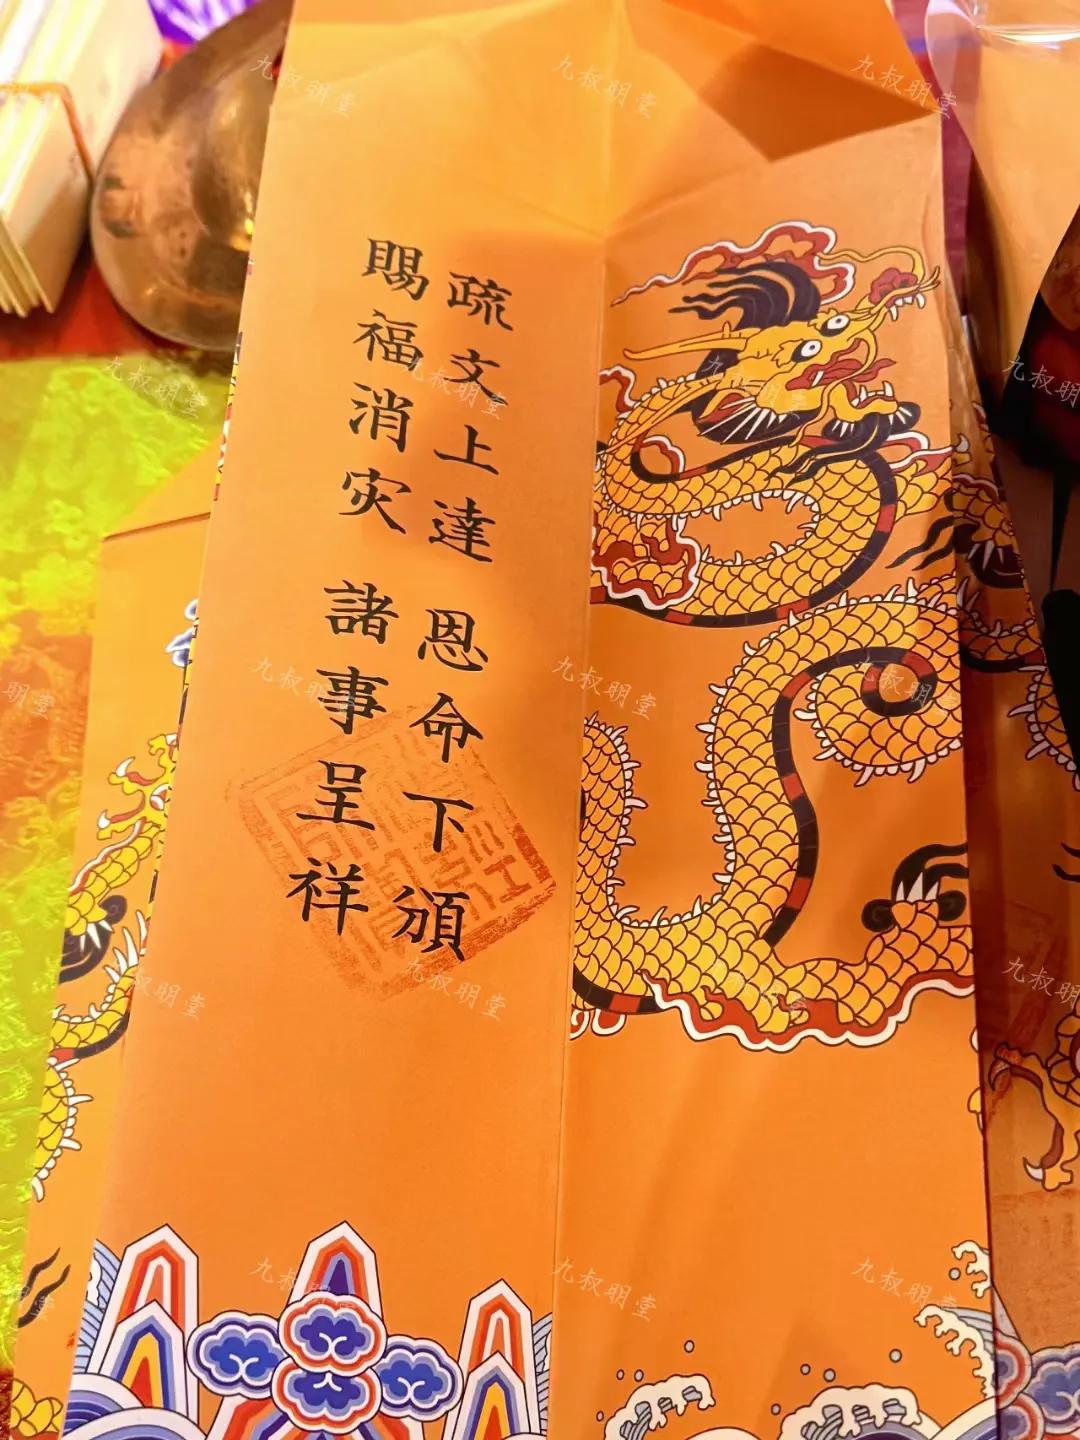 疏文上達 恩命下頒
賜福消灾 諸事呈祥
九叔明堂